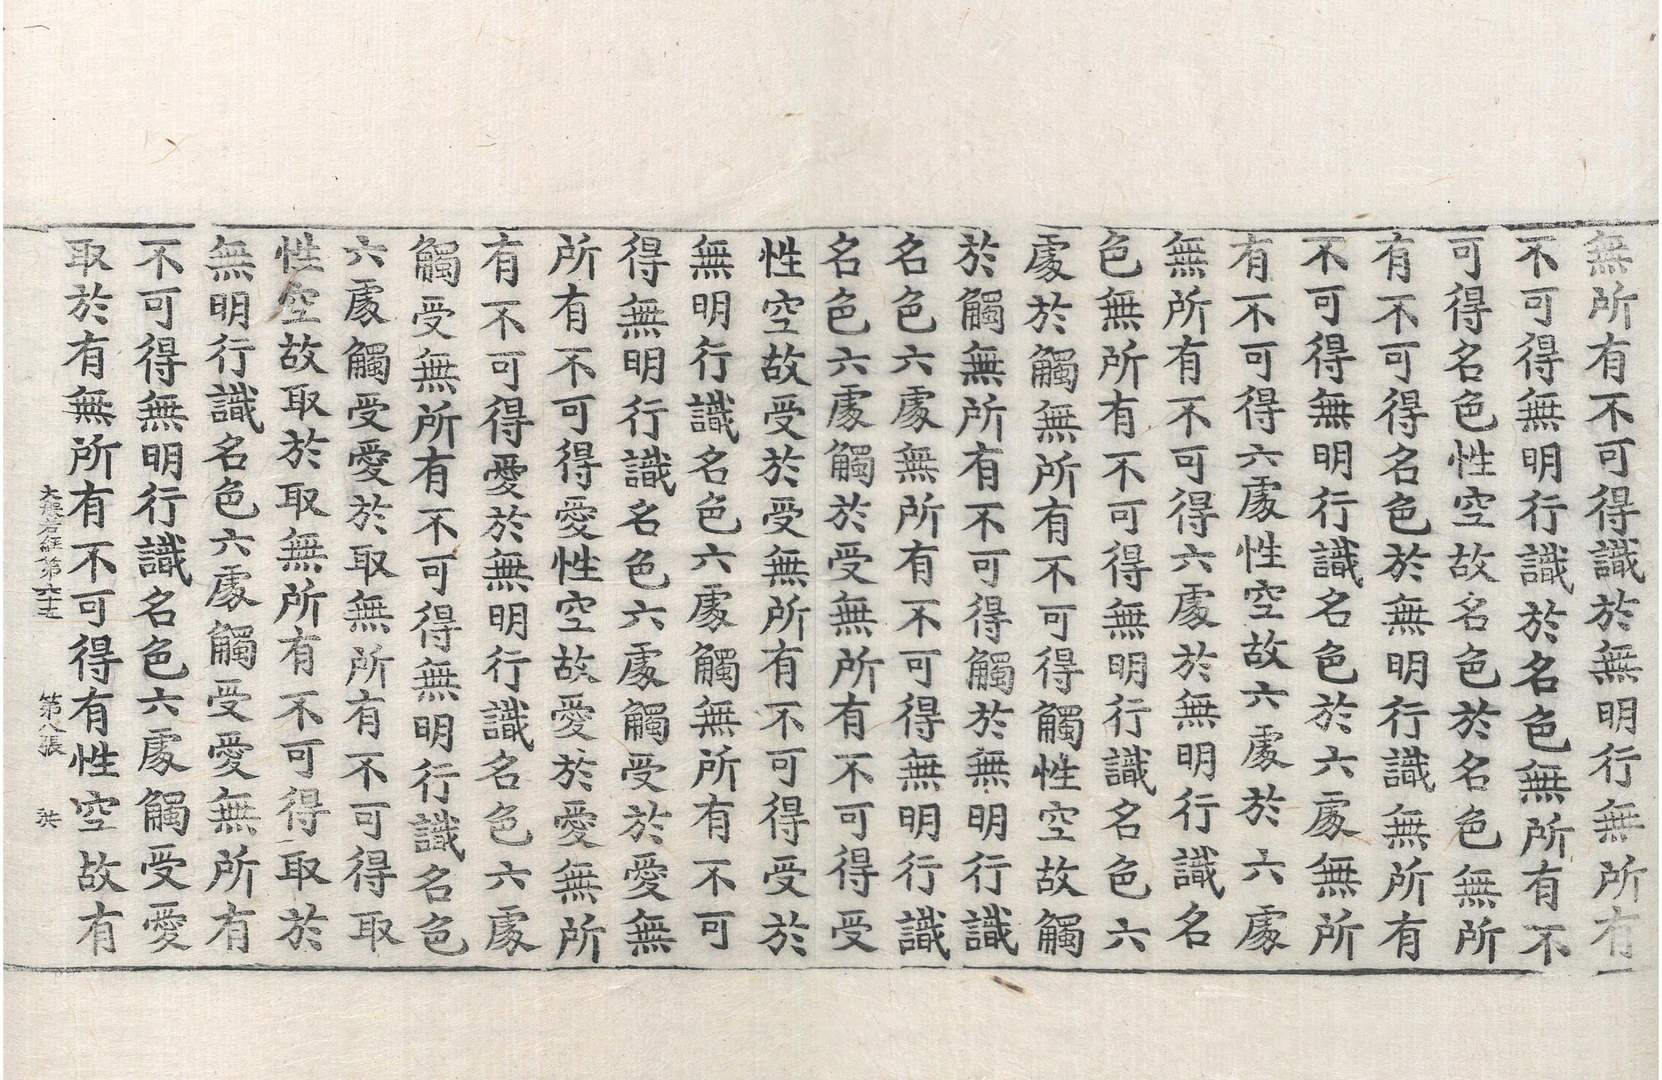 無所有不可得識於無明行無所有
不可得無明行識於名色無所有不
可得名色性空故名色於名色無所
有不可得名色於無明行識無所有
不可得無明行識名色於六處無所
有不可得六處性空故六處於六處
無所有不可得六處於無明行識名
色無所有不可得無明行識名色六
處於觸無所有不可得觸性空故觸
於觸無所有不可得觸於無明行識
名色六處無所有不可得無明行識
名色六處觸於受無所有不可得受
性空故受於受無所有不可得受於
無明行識名色六處觸無所有不可
得無明行識名色六處觸受於愛無
所有不可得愛性空故愛於愛無所
有不可得愛於無明行識名色六處
觸受無所有不可得無明行識名色
六處觸受愛於取無所有不可得取
性空故取於取無所有不可得取於
無明行識名色六處觸受愛無所有
不可得無明行識名色六處觸受愛
取於有無所有不可得有性空故有
大般若經第六十七 第八張 洪